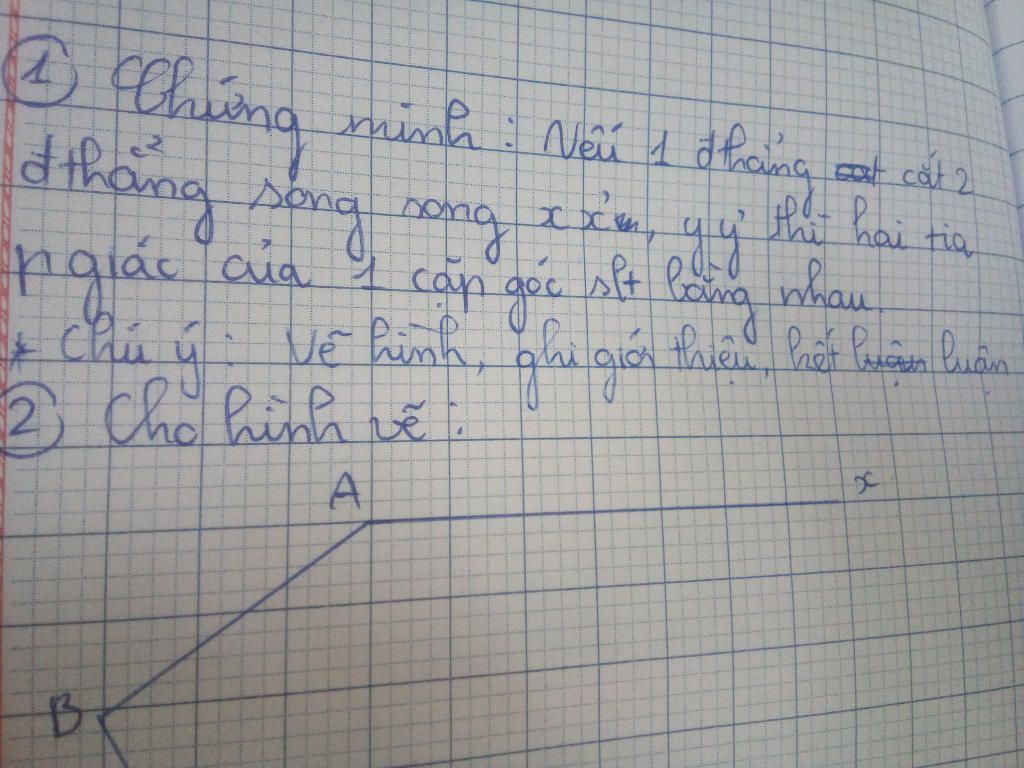 1 Chứng minh: Nếu 1 đthẳng cắt 2
đthẳng song song xx', yy' thì hai tia
pgiác của 1 cặp góc slt bằng nhau.
* Chú ý: Vẽ hình, ghi giới thiệu, kết luận
2 Cho hình vẽ:
A x
B